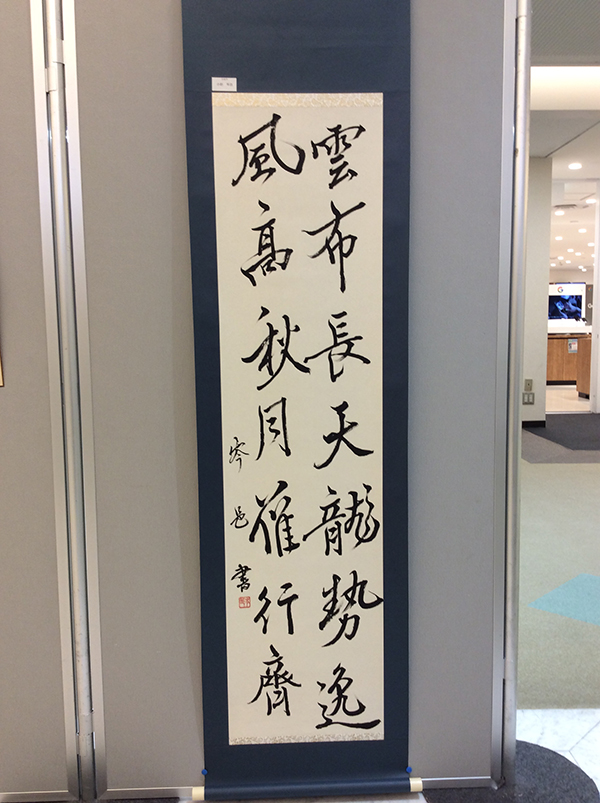 雲布長天龍勢逸
風高秋月雁行齊
書
G